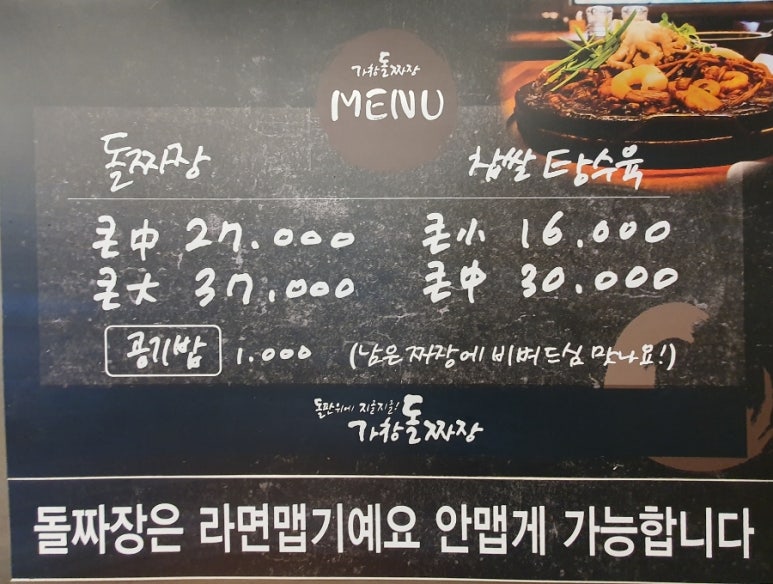 가창돌짜장
MENU
돌짜장
찹쌀 탕수육
큰中 27.000
큰小 16.000
큰大 37.000
큰中 30.000
공기밥 1.000 (남은 짜장에 비벼드심 맛나요!)
돌판위에 지글지글!
가창돌짜장
돌짜장은 라면맵기예요 안맵게 가능합니다